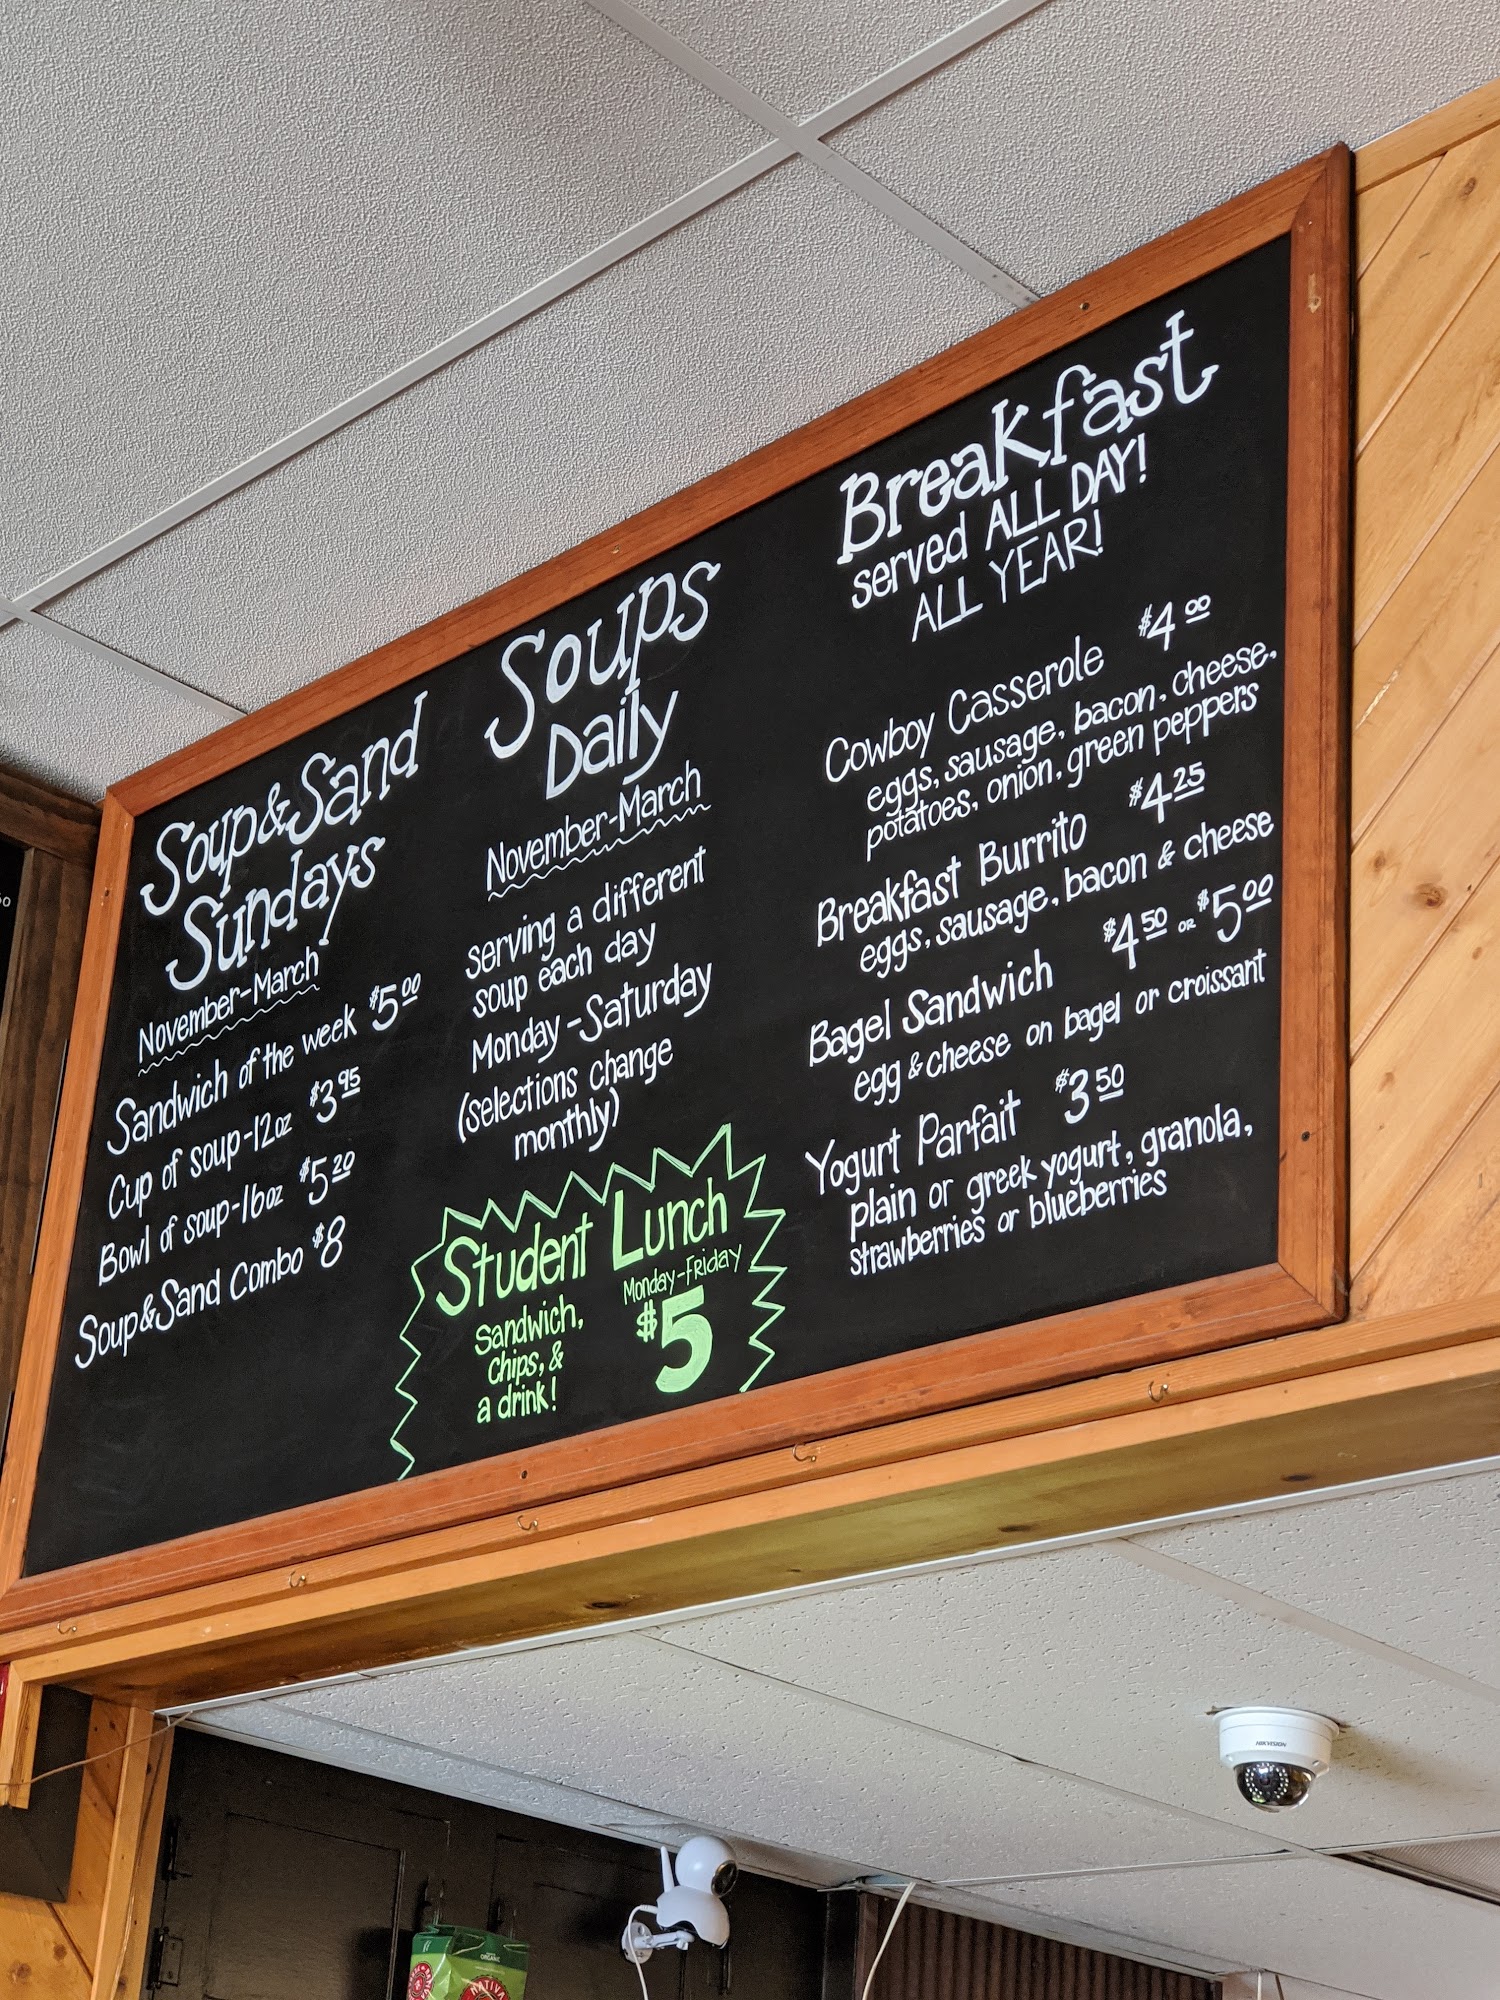 Soup & Sand
Sundays
November-March
Sandwich of the week $5.00
Cup of soup-12oz $3.95
Bowl of soup-16oz $5.20
Soup & Sand Combo $8
Soups
Daily
November-March
serving a different
soup each day
Monday-Saturday
(selections change
monthly)
Student Lunch
Monday-Friday
Sandwich,
chips, &
a drink!
$5
Breakfast
served ALL DAY!
ALL YEAR!
Cowboy Casserole $4.00
eggs, sausage, bacon, cheese,
potatoes, onion, green peppers
Breakfast Burrito $4.25
eggs, sausage, bacon & cheese
Bagel Sandwich $4.50 OR $5.00
egg & cheese on bagel or croissant
Yogurt Parfait $3.50
plain or greek yogurt, granola,
strawberries or blueberries
HIKVISION
ORGANIC